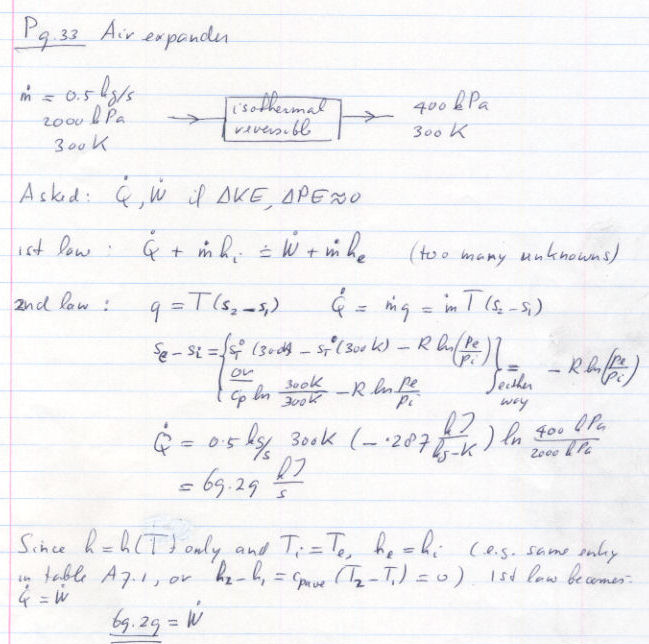 P9.33 Air expander
ṁ = 0.5 kg/s
2000 kPa
300 K
isothermal
reversible
400 kPa
300 K
Asked: Q̇, Ẇ if ΔKE, ΔPE ≈ 0
1st law: Q̇ + ṁhᵢ = Ẇ + ṁhₑ (too many unknowns)
2nd law: q = T(s₂-s₁) Q̇ = ṁq = ṁT(s₂-s₁)
sₑ - sᵢ = { s°_T (300K) - s°_T (300K) - R ln(Pₑ/Pᵢ)
or
c_p ln 300K/300K - R ln Pₑ/Pᵢ } = either way - R ln(Pₑ/Pᵢ)
Q̇ = 0.5 kg/s 300K (-.287 kJ/kg-K) ln 400 kPa/2000 kPa
= 69.29 kJ/s
Since h=h(T) only and Tᵢ=Tₑ, hₑ=hᵢ (e.g. same entry
in table A7.1, or h₂-h₁ = c_pave (T₂-T₁) = 0) 1st law becomes:
Q̇ = Ẇ
69.29 = Ẇ